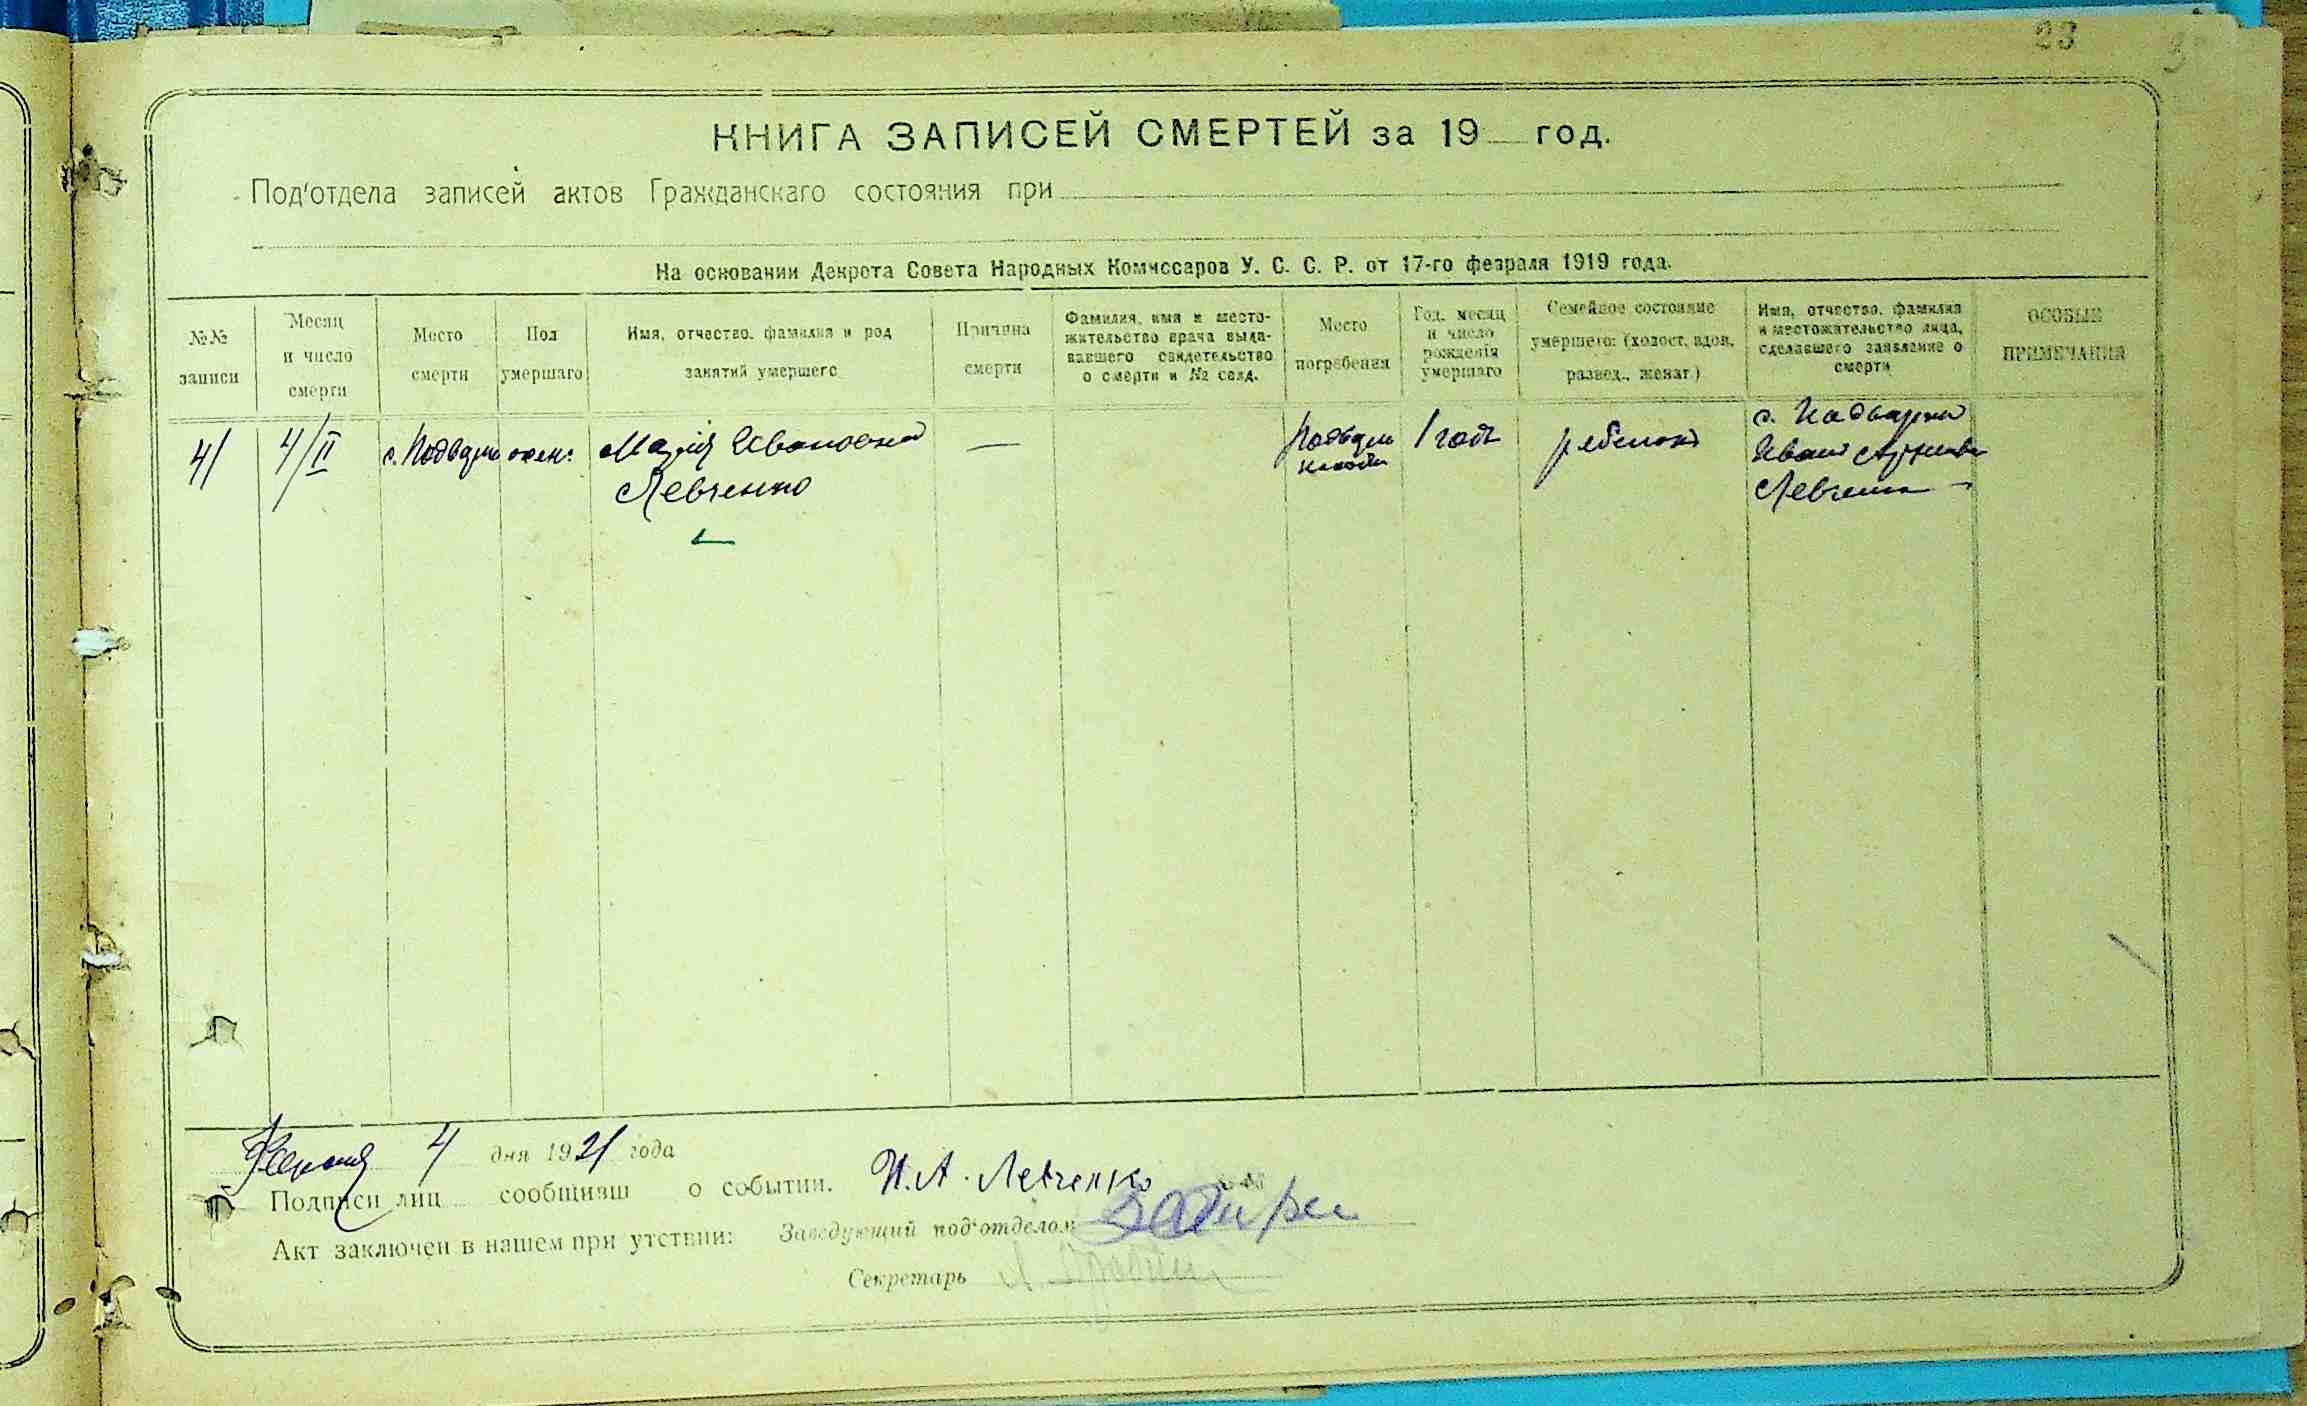 23
КНИГА ЗАПИСЕЙ СМЕРТЕЙ за 19 год.
Под'отдела записей актов Гражданскаго состояния при
На основании Декрета Совета Народных Комиссаров У. С. С. Р. от 17-го февраля 1919 года.
№№ записи
Месяц и число смерти
Место смерти
Пол умершаго
Имя, отчество, фамилия и род занятий умершего
Причина смерти
Фамилия, имя и место-жительство врача выда-вавшего свидетельство о смерти и № свид.
Место погребения
Год, месяц и число рождения умершаго
Семейное состояние умершего: (холост, вдов, развед., женат.)
Имя, отчество, фамилия и местожительство лица, сделавшего заявление о смерти
ОСОБЫЕ ПРИМЕЧАНИЯ
4
4/II
с. Подварки
жен.
Мария Ивановна
Левченко
—
Подварки
1 годъ
ребенок
с. Подварки
Иван
Левченко
Февраля 4 дня 1921 года
Подписи лиц сообщивш о событии. И. А. Левченко
Акт заключен в нашем при утствии: Заведующий под'отделом
Секретарь